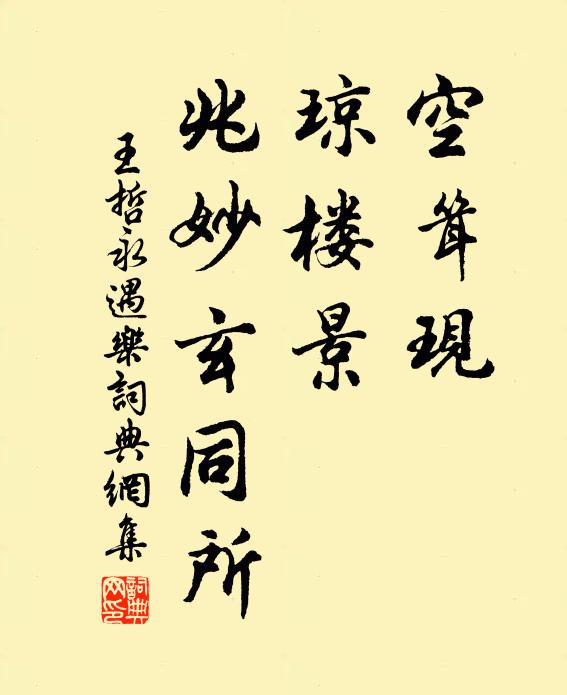 空耸現
琼楼景
兆妙玄同所
王哲永遇樂詞典網集
詞典
网印